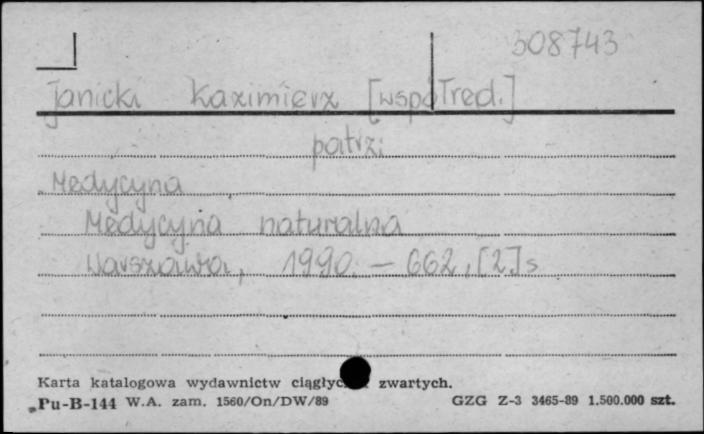 308743
Janicki Kazimierz [współred.]
patrz:
Medycyna
Medycyna naturalna
Warszawa, 1990. — 662, [2] s
Karta katalogowa wydawnictw zwartych.
Pu-B-144 W.A. zam. 1560/On/DW/89 GZG Z-3 3465-89 1.500.000 szt.